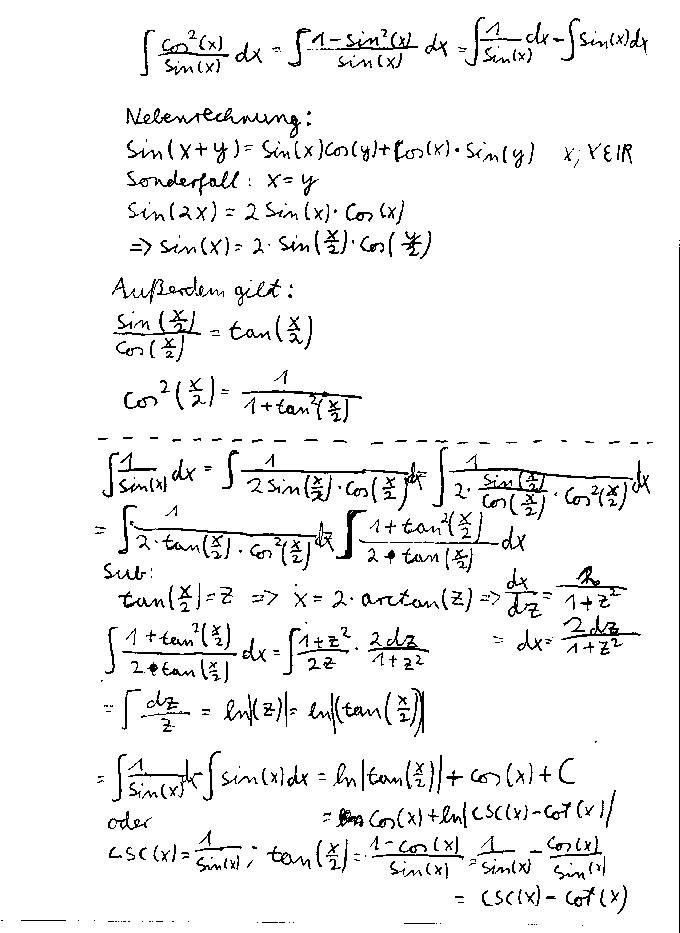 ∫ cos²(x)/sin(x) dx = ∫ 1-sin²(x)/sin(x) dx = ∫ 1/sin(x) dx - ∫ sin(x)dx
Nebenrechnung:
sin(x+y) = sin(x)cos(y) + cos(x)·sin(y) x, y∈ℝ
Sonderfall: x=y
sin(2x) = 2 sin(x)·cos(x)
=> sin(x) = 2·sin(x/2)·cos(x/2)
Außerdem gilt:
sin(x/2)/cos(x/2) = tan(x/2)
cos²(x/2) = 1/(1+tan²(x/2))
∫ 1/sin(x) dx = ∫ 1/(2 sin(x/2)·cos(x/2)) dx = ∫ 1/(2·sin(x/2)/cos(x/2)·cos²(x/2)) dx
= ∫ 1/(2·tan(x/2)·cos²(x/2)) dx ∫ (1+tan²(x/2))/(2·tan(x/2)) dx
Sub:
tan(x/2) = z => x = 2·arctan(z) => dx/dz = 2/(1+z²)
∫ (1+tan²(x/2))/(2·tan(x/2)) dx = ∫ (1+z²)/2z · 2dz/(1+z²) = dx = 2dz/(1+z²)
= ∫ dz/z = ln|(z)| = ln|(tan(x/2))|
= ∫ 1/sin(x) dx - ∫ sin(x)dx = ln|tan(x/2)| + cos(x) + C
oder = cos(x) + ln|csc(x)-cot(x)|
csc(x) = 1/sin(x); tan(x/2) = (1-cos(x))/sin(x) = 1/sin(x) - cos(x)/sin(x)
= csc(x) - cot(x)